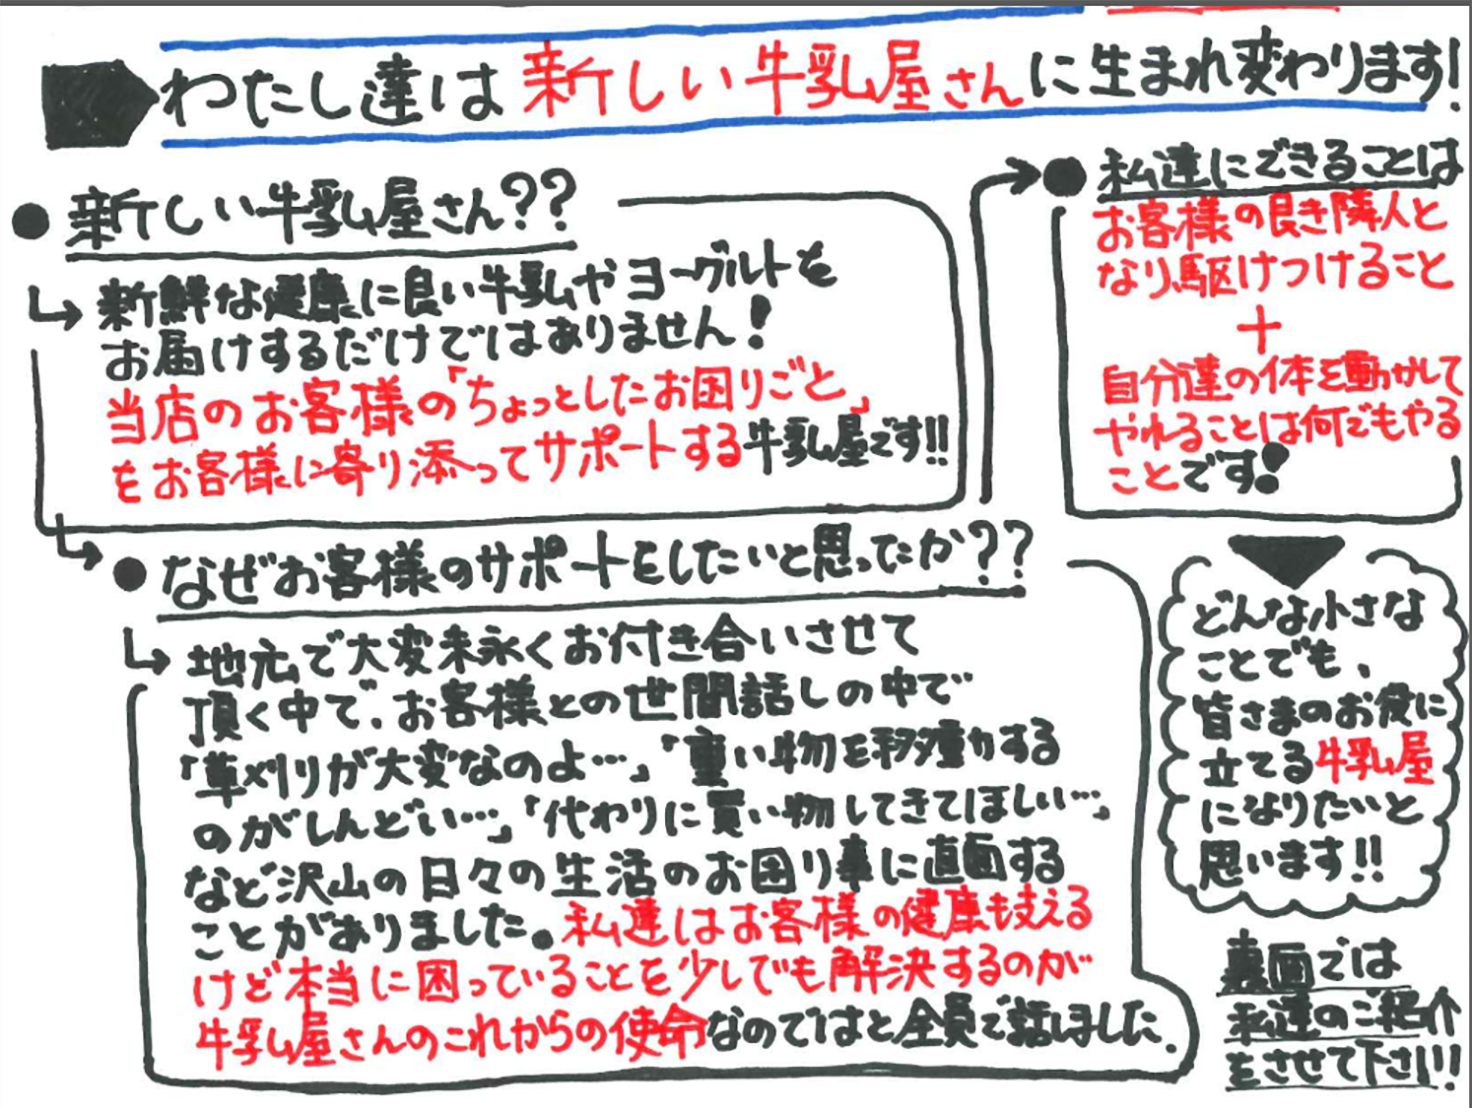 わたし達は新しい牛乳屋さんに生まれ変わります!
●新しい牛乳屋さん??
↳新鮮な健康に良い牛乳やヨーグルトを
お届けするだけではありません!
当店のお客様の「ちょっとしたお困りごと」
をお客様に寄り添ってサポートする牛乳屋です!!
●なぜお客様のサポートをしたいと思ったか??
↳地元で大変末永くお付き合いさせて
頂く中で、お客様との世間話しの中で
「草刈りが大変なのよ…」「重い物を移動する
のがしんどい…」「代わりに買い物してきてほしい…」
など沢山の日々の生活のお困り事に直面する
ことがありました。私達はお客様の健康も支える
けど本当に困っていることを少しでも解決するのが
牛乳屋さんのこれからの使命なのではと全員で話しました。
●私達にできることは
お客様の良き隣人と
なり、駆けつけること
+
自分達の体を動かして
やれることは何でもやる
ことです!
どんな小さな
ことでも、
皆さまのお役に
立てる牛乳屋
になりたいと
思います!!
裏面では
私達のご紹介
をさせて下さい!!